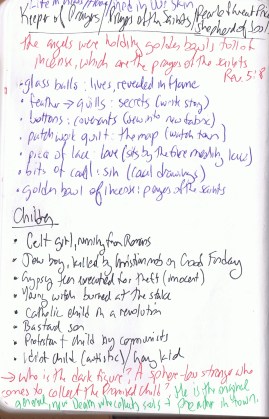 Keeper of Prayers / Prayers of the Saints / Pearl of Great Price
Shepherd of Souls
the angels were holding golden bowls full of
incense, which are the prayers of the saints
Rev. 5:8
• glass balls: lives, revealed in flame
• feather → quills: secrets (write story)
• buttons: covenants (sewn into new fabric)
• patchwork quilt: the map (watch town)
• piece of lace: love (sits by the fire making lace)
• bits of coal: sin (coal drawings)
• golden bowl of incense: prayers of the saints
Children
• Celt girl, running from Romans
• Jew boy, killed by Christian mob on Good Friday
• Gypsy teen executed for theft (innocent)
• Young witch burned at the stake
• Catholic child in a revolution
• Bastard son
• Protestant child by communists
• Idiot child (autistic) / gay kid
→ Who is the dark figure? The sphere- strange
comes to collect the Promised Child? He is the original
Death who collects souls +